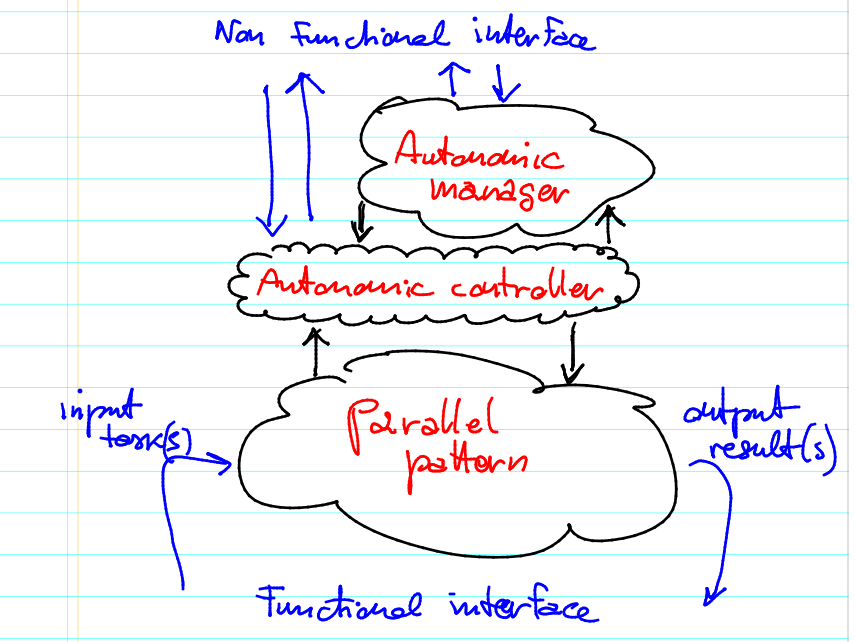 Non Functional interface
Autonomic
manager
Autonomic controller
input
task(s)
Parallel
pattern
output
result(s)
Functional interface